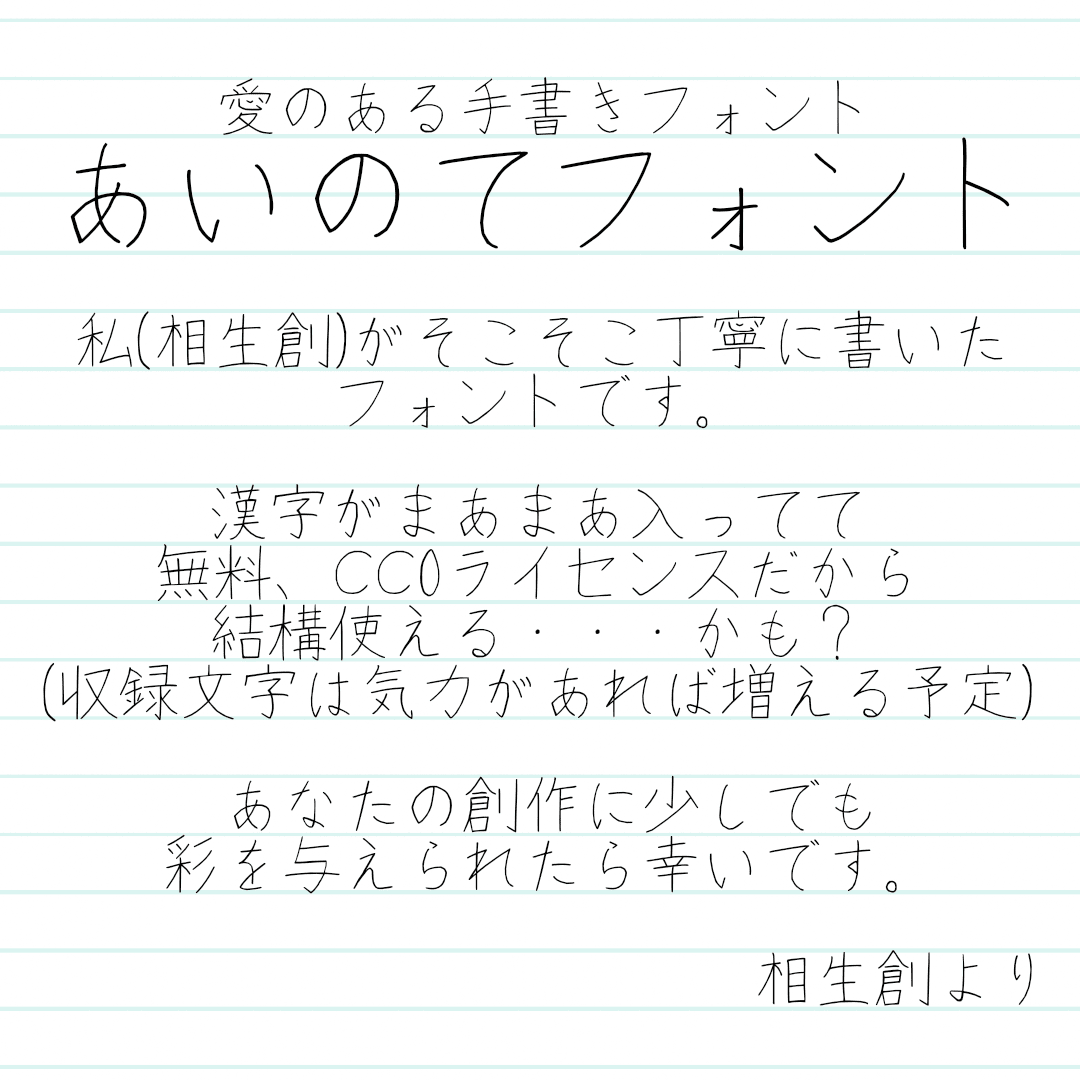 愛のある手書きフォント
あいのてフォント
私(相生創)がそこそこ丁寧に書いた
フォントです。
漢字がまあまあ入ってて
無料、CC0ライセンスだから
結構使える・・・かも?
(収録文字は気力があれば増える予定)
あなたの創作に少しでも
彩を与えられたら幸いです。
相生創より